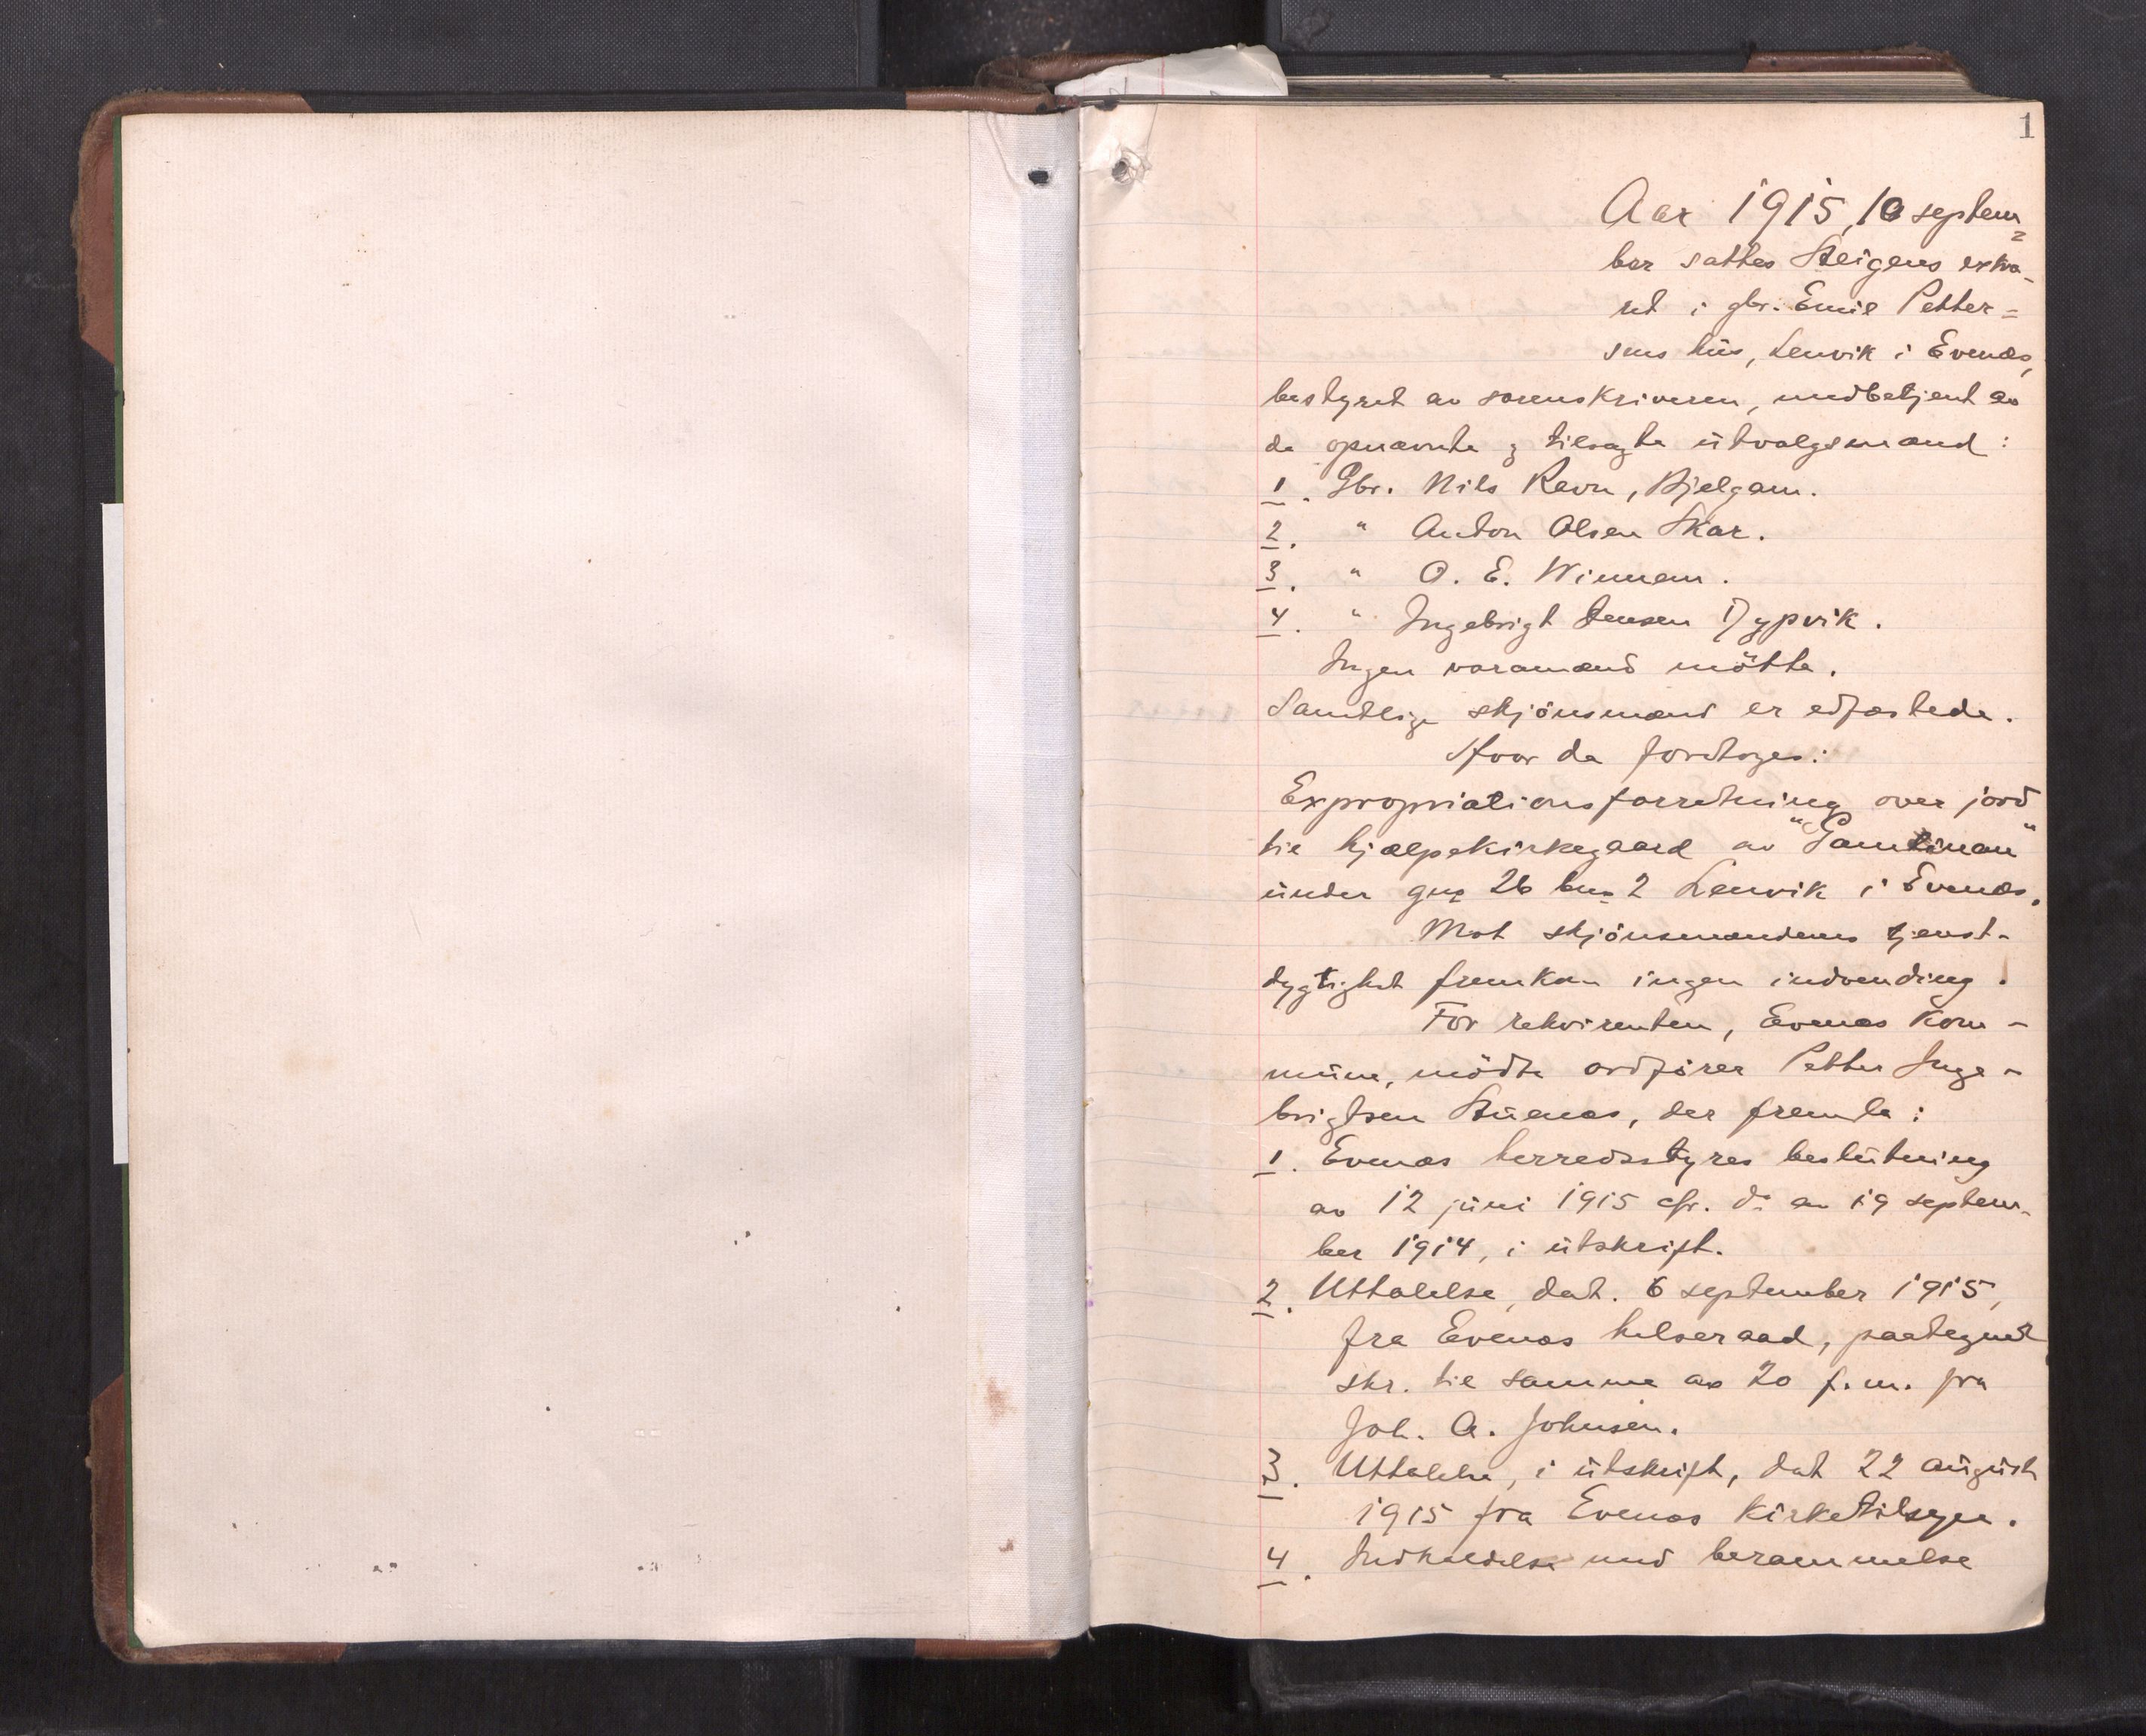 1
Aar 1915, 10 septem=
ber sattes Steigens extra-
ret i gbr. Emil Petter=
sens hus, Lenvik i Evenes,
bestyret av sorenskriveren, medbetjent av
de opnævnte og tilsagte utvalgsmænd:
1. Gbr. Nils Ravn, Bjelgam.
2. " Anton Olsen Skar.
3. " O. E. Winnem.
4. " Ingebrigt Jensen Dypvik.
Ingen varamænd mötte.
Samtlige skjönsmænd er edfæstede.
Hvor da foretoges:
Expropriationsforretning over jord
til hjælpekirkegaard av
under gnr 26 bnr 2 Lenvik i Evenes.
Mot skjönsmændenes tjenst-
dygtighet fremkom ingen indvending.
For rekvirenten, Evenes kom-
mune, mödte ordförer Petter Inge-
brigtsen Stuenes, der fremla:
1. Evenes herredsstyres beslutning
av 12 juni 1915 cfr. do av 19 septem-
ber 1914, i utskrift.
2. Uttalelse, dat. 6 september 1915,
fra Evenes helseraad, paategnet
skr. til samme av 20 f.m. fra
Joh. A. Johnsen.
3. Uttalelse, i utskrift, dat 22 august
1915 fra Evenes kirketilsyn.
4. Indkaldelse med berammelse